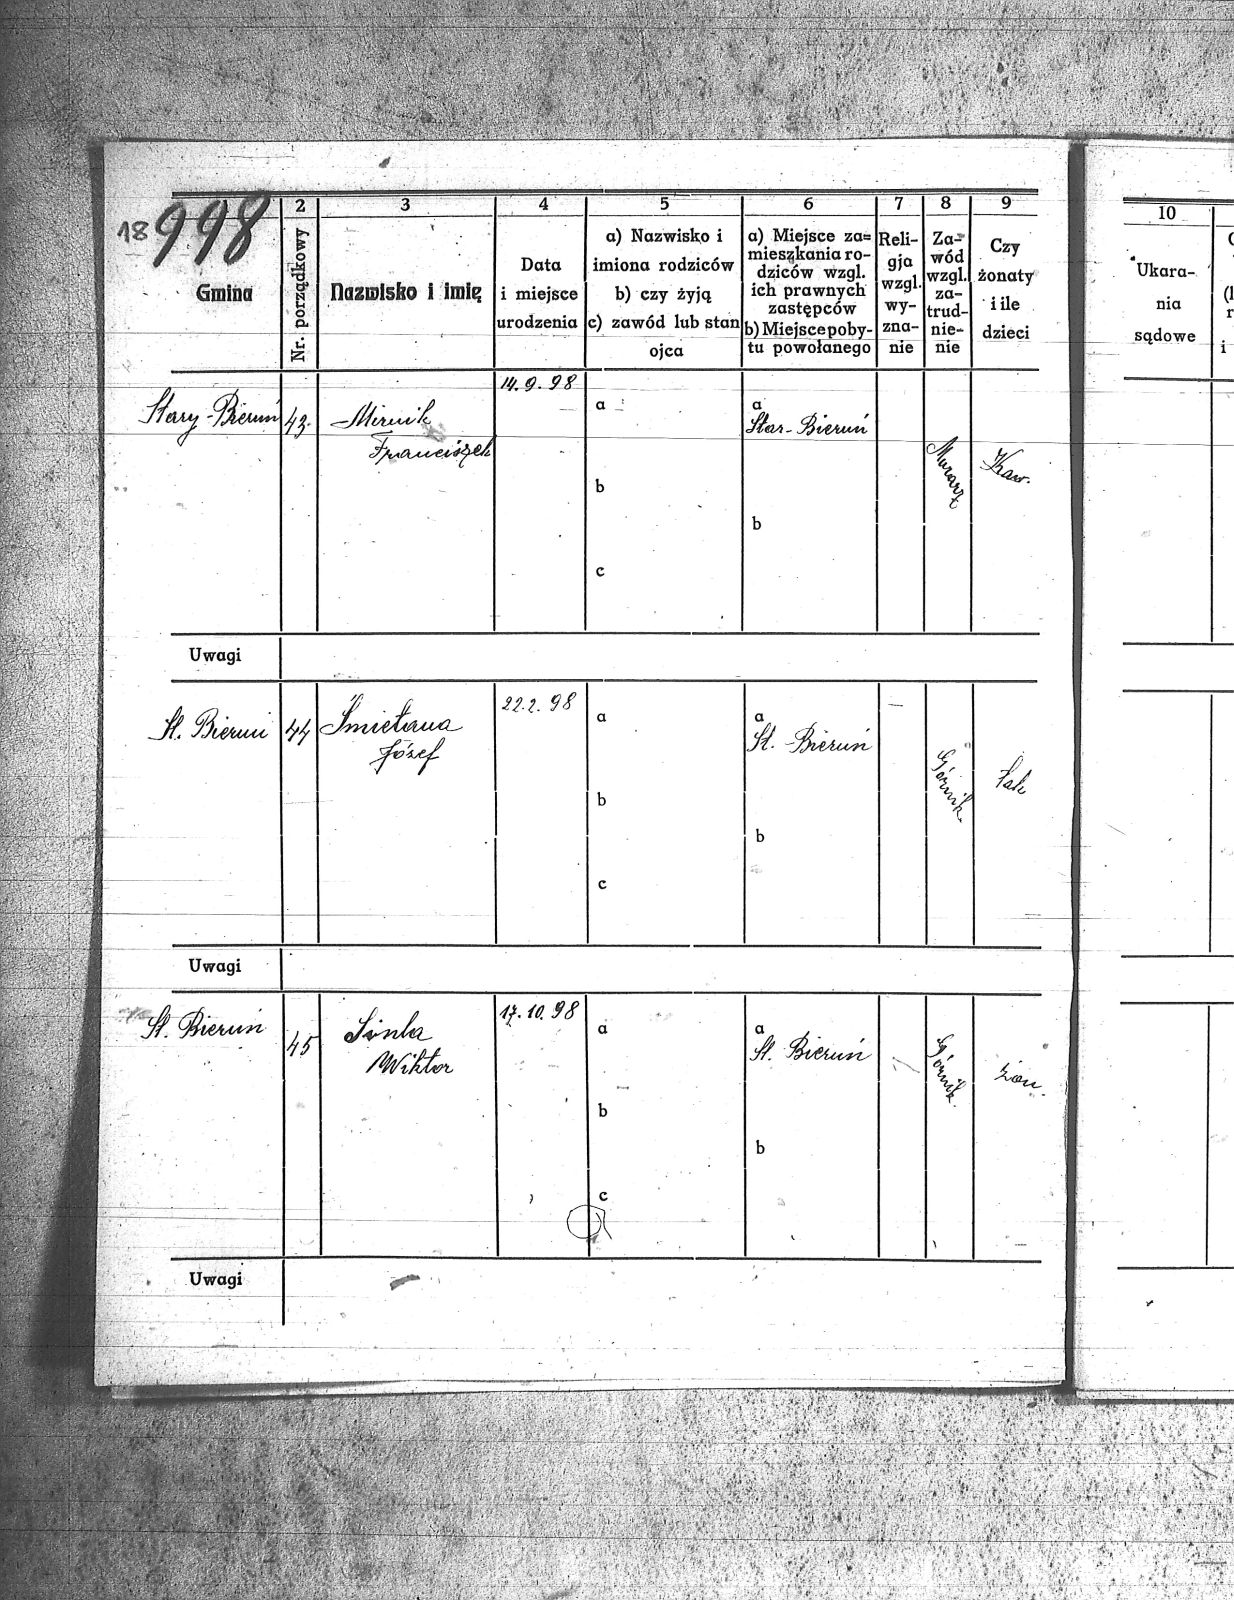 18 998
2 3 4 5 6 7 8 9
Gmina
Nr. porządkowy
Nazwisko i imię
Data
i miejsce
urodzenia
a) Nazwisko i
imiona rodziców
b) czy żyją
c) zawód lub stan
ojca
a) Miejsce za=
mieszkania ro-
dziców wzgl.
ich prawnych
zastępców
b) Miejsce poby-
tu powołanego
Reli-
gja
wzgl.
wy-
zna-
nie
Za-
wód
wzgl.
za-
trud-
nie-
nie
Czy
żonaty
i ile
dzieci
10
Ukara-
nia
sądowe
Stary-Bieruń
43.
Mirnik
Franciszek
14.9.98
a
b
c
a
Star-Bieruń
b
Murarz
Kaw.
Uwagi
St. Bieruń
44
Śmietana
Józef
22.2.98
a
b
c
a
St. Bieruń
b
Górnik.
Uwagi
St. Bieruń
45
Wiktor
17.10.98
a
b
c
a
St. Bieruń
b
Górnik.
żon.
Uwagi